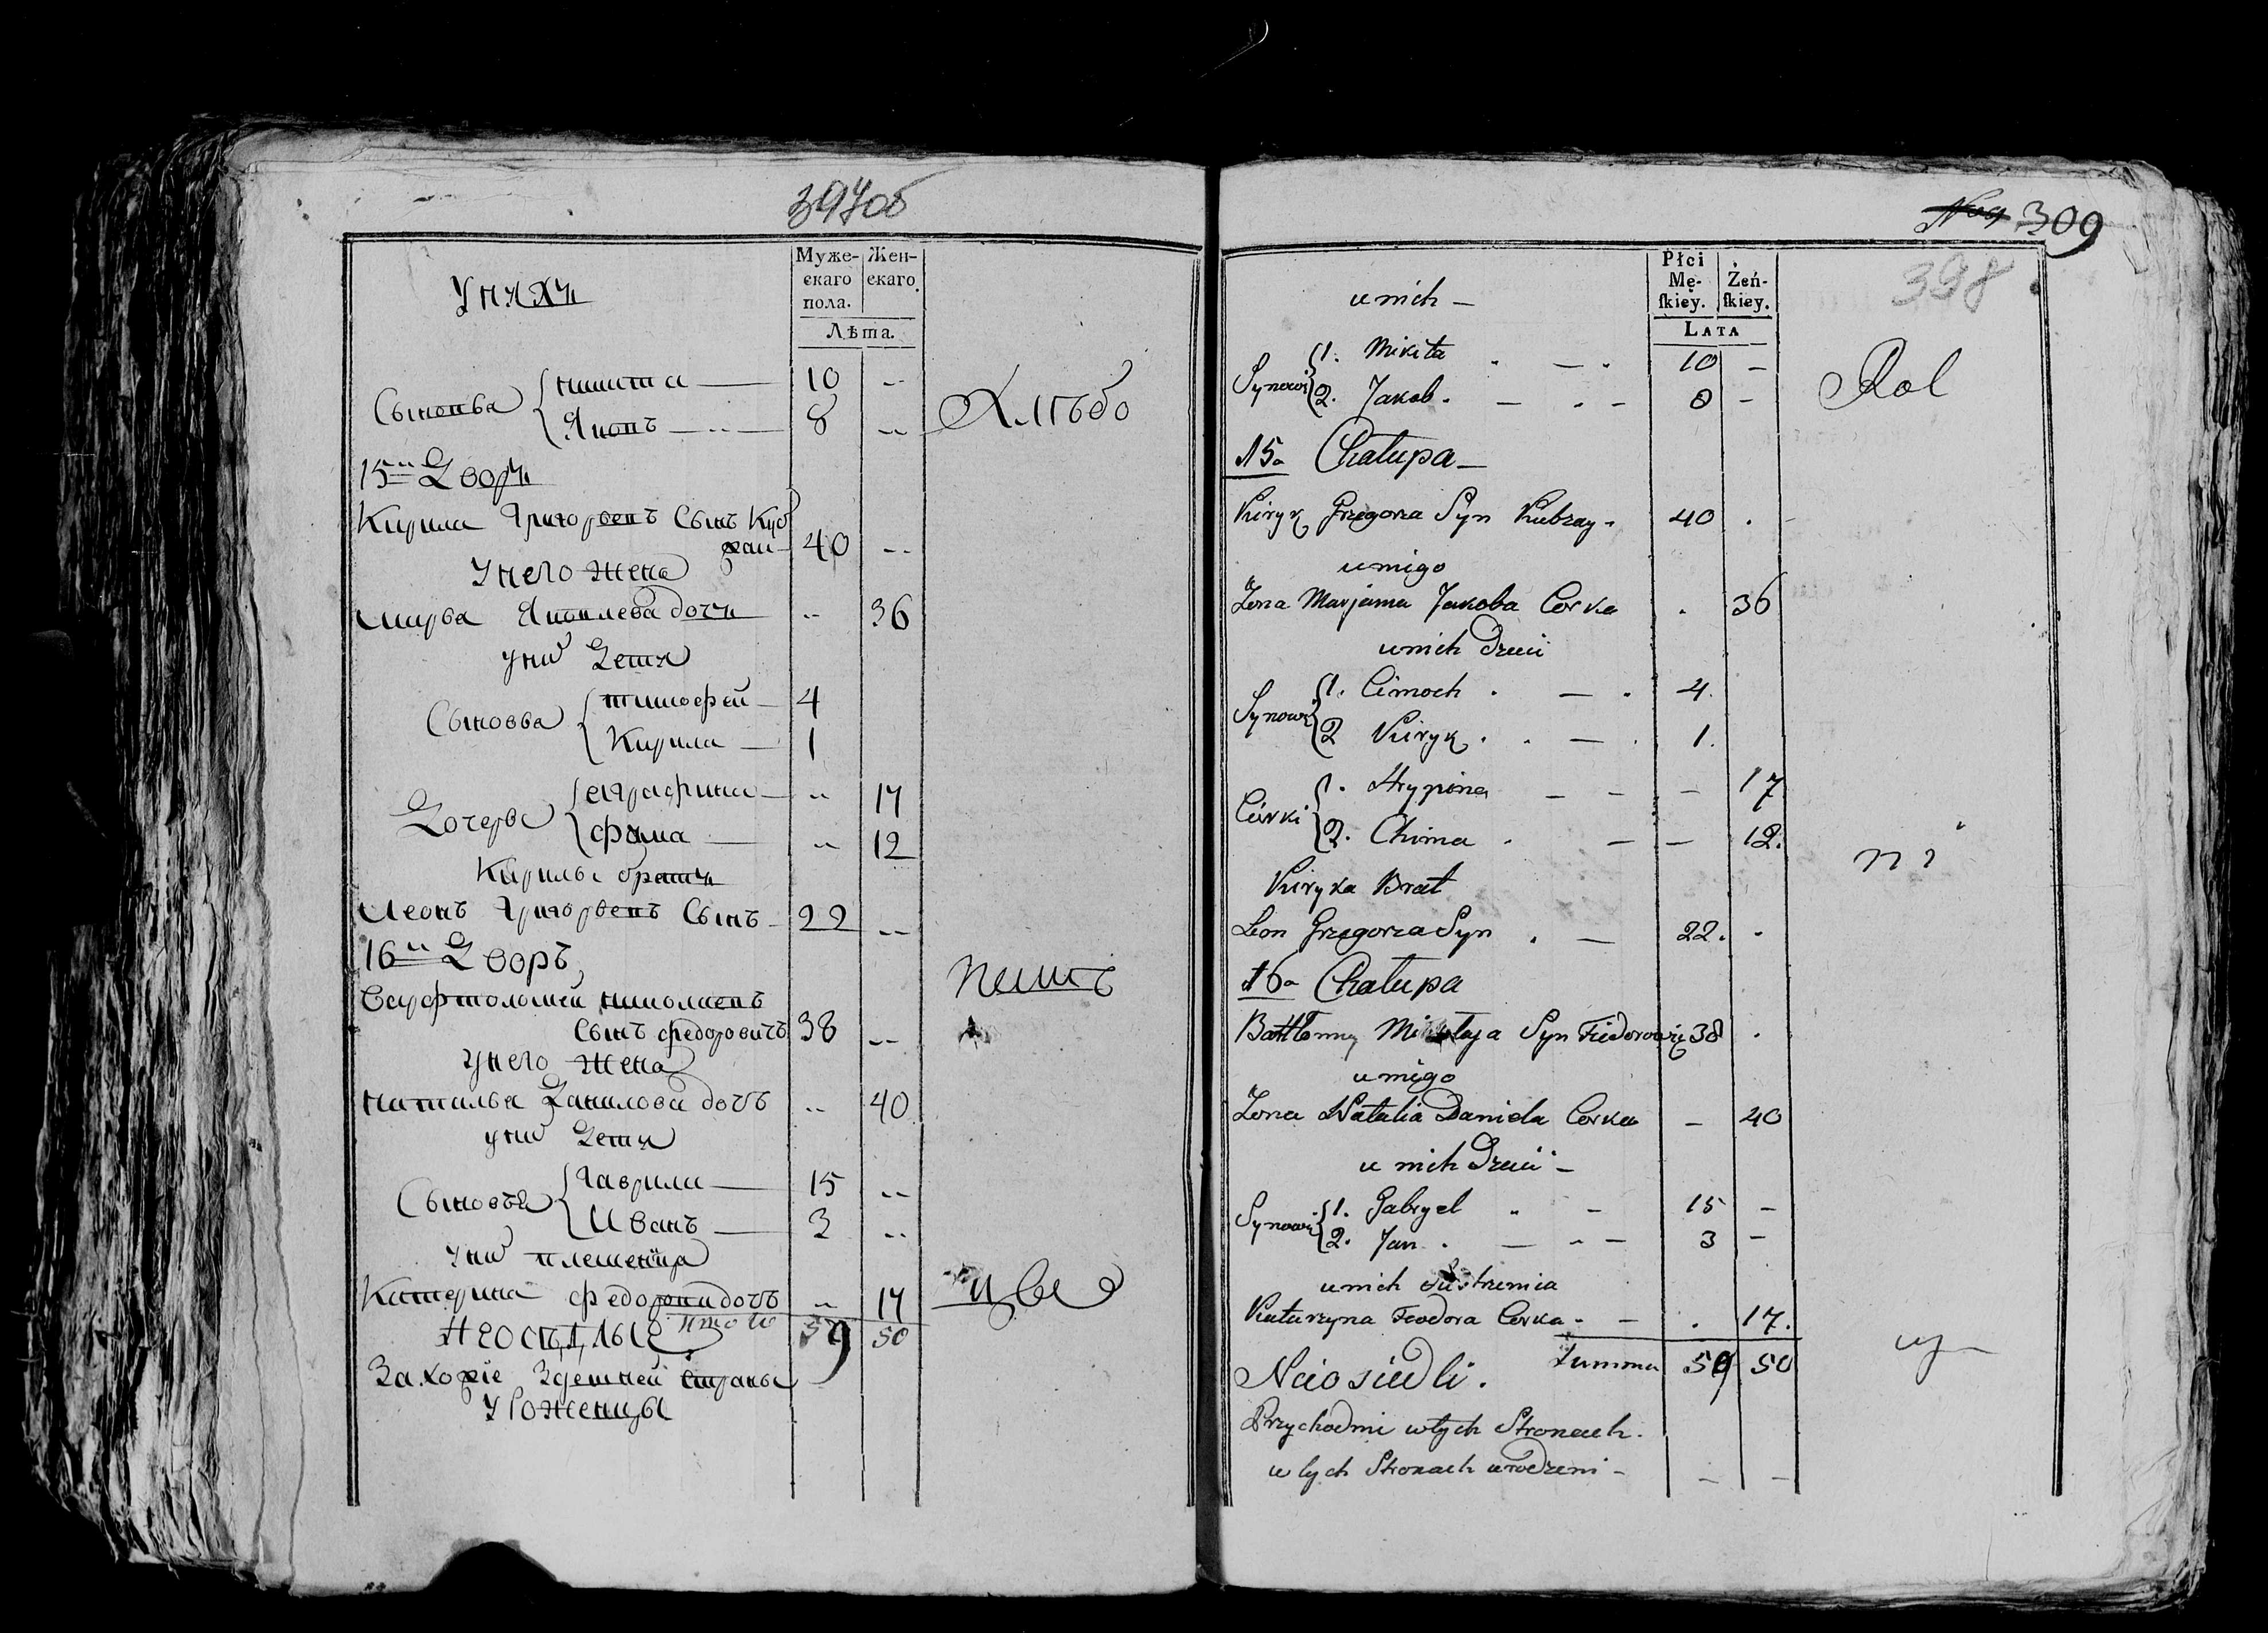 397об
Муже-
скаго
пола.
Жен-
скаго.
Лѣта.
Сыновья
никита 10
Яковъ 8
Хлѣбо
15й Дворъ
Кирила Григорьевъ Сынъ Куб
рай 40
У него жена
Марья Яковлева дочь 36
У них Дети
Сыновья
тимофей 4
Кирила 1
Дочерьи
аграфина 17
фима 12
Кирилы братъ
Леонъ Григорьевъ Сынъ 22
16й Дворъ
Варфтоломей николаевъ
пешъ
Сынъ федоровичъ 38
У него жена
наталья Данилова дочь 40
У них Дети
Сыновья
Гаврила 15
Иванъ 3
У них племеница
Катерина федорова дочь 17
Итого 59 50
Захожіе Здешней Страны
Уроженцы
309
398
u nich
Płci
Mę-
ſkiey.
Żeń-
ſkiey.
LATA
Synowi
1. Mikita 10
2. Jakob 8
Rol
15a Chałupa
Kiryk Gregorza Syn Kubray 40
u niego
Żona Marjanna Jakoba Corka 36
u nich Dzieci
Synowi
1. Cimoch 4.
2 Kiryk 1.
Córki
1. Hrypina 17
2. Chima 12.
ni
Kiryka Brat
Leon Grzegorza Syn 22.
16a Chałupa
Bartłomiey Mikołaja Syn Fiedorowicz 38
u niego
Żona Natalia Daniela Corka 40
u nich Dzieci
Synowi
1. Gabryel 15
2. Jan 3
u nich siostrzenica
Katarzyna Feodora Corka 17.
Summa 59 50
Nieosiedli.
cy
Przychodni w tych Stronach.
w tych Stronach urodzeni